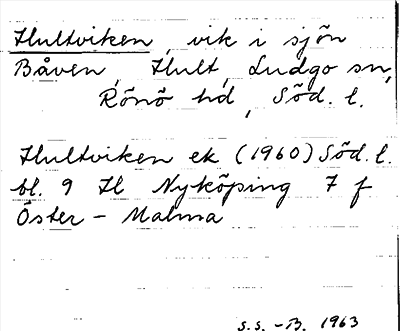 Hultviken, vik i sjön
Båven, Hult, Ludgo sn,
Rönö hd, Söd. l.
Hultviken ek (1960) Söd. l.
bl. 9 H Nyköping 7 f
Öster - Malma
S.S. - B. 1963